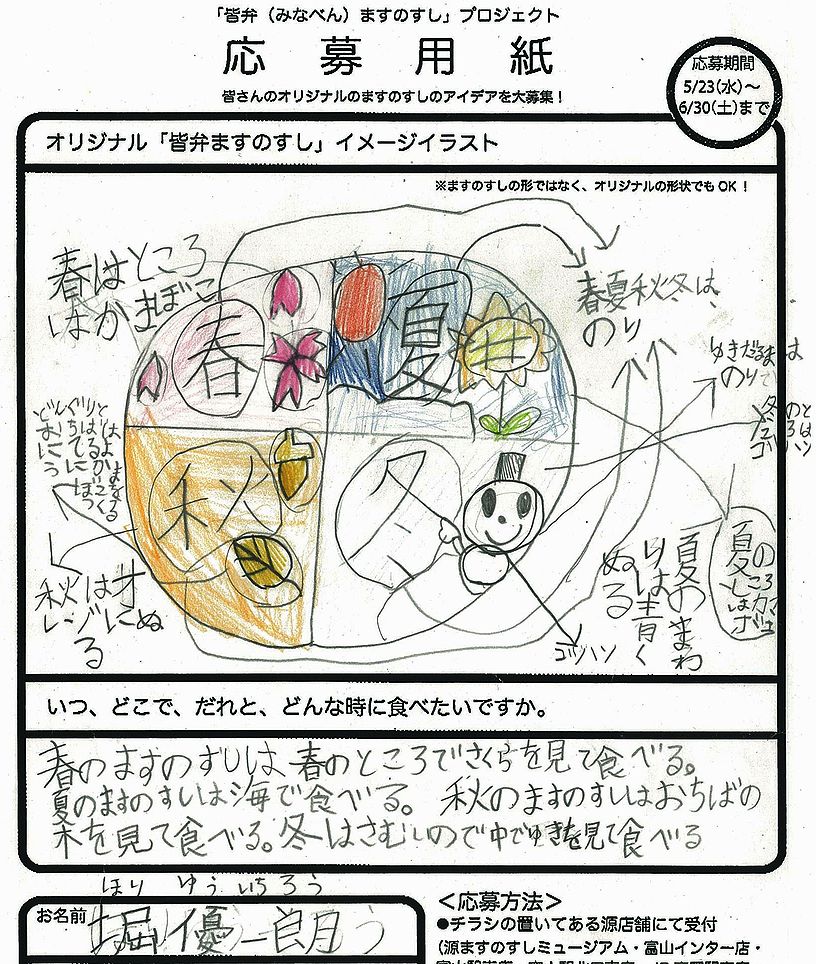 「皆弁（みなべん）ますのすし」プロジェクト
応募用紙
皆さんのオリジナルのますのすしのアイデアを大募集！
応募期間
5/23(水)～
6/30(土)まで
オリジナル「皆弁ますのすし」イメージイラスト
※ますのすしの形ではなく、オリジナルの形状でもOK！
春はところ
はかまぼこ
春
夏
春夏秋冬は、
のり
ゆきだるまは
のりで
冬のと
ころは
ゴハン
秋
冬
秋はオ
レンジにぬ
る
夏のまわ
りは青く
ぬる
夏の
ゴハン
いつ、どこで、だれと、どんな時に食べたいですか。
春のますのすしは春のところでさくらを見て食べる。
夏のますのすしは海で食べる。秋のますのすしはおちばの
木を見て食べる。冬はさむいので中でゆきを見て食べる
ほり ゆう いちろう
お名前
堀優一朗う
＜応募方法＞
●チラシの置いてある源店舗にて受付
（源ますのすしミュージアム・富山インター店・